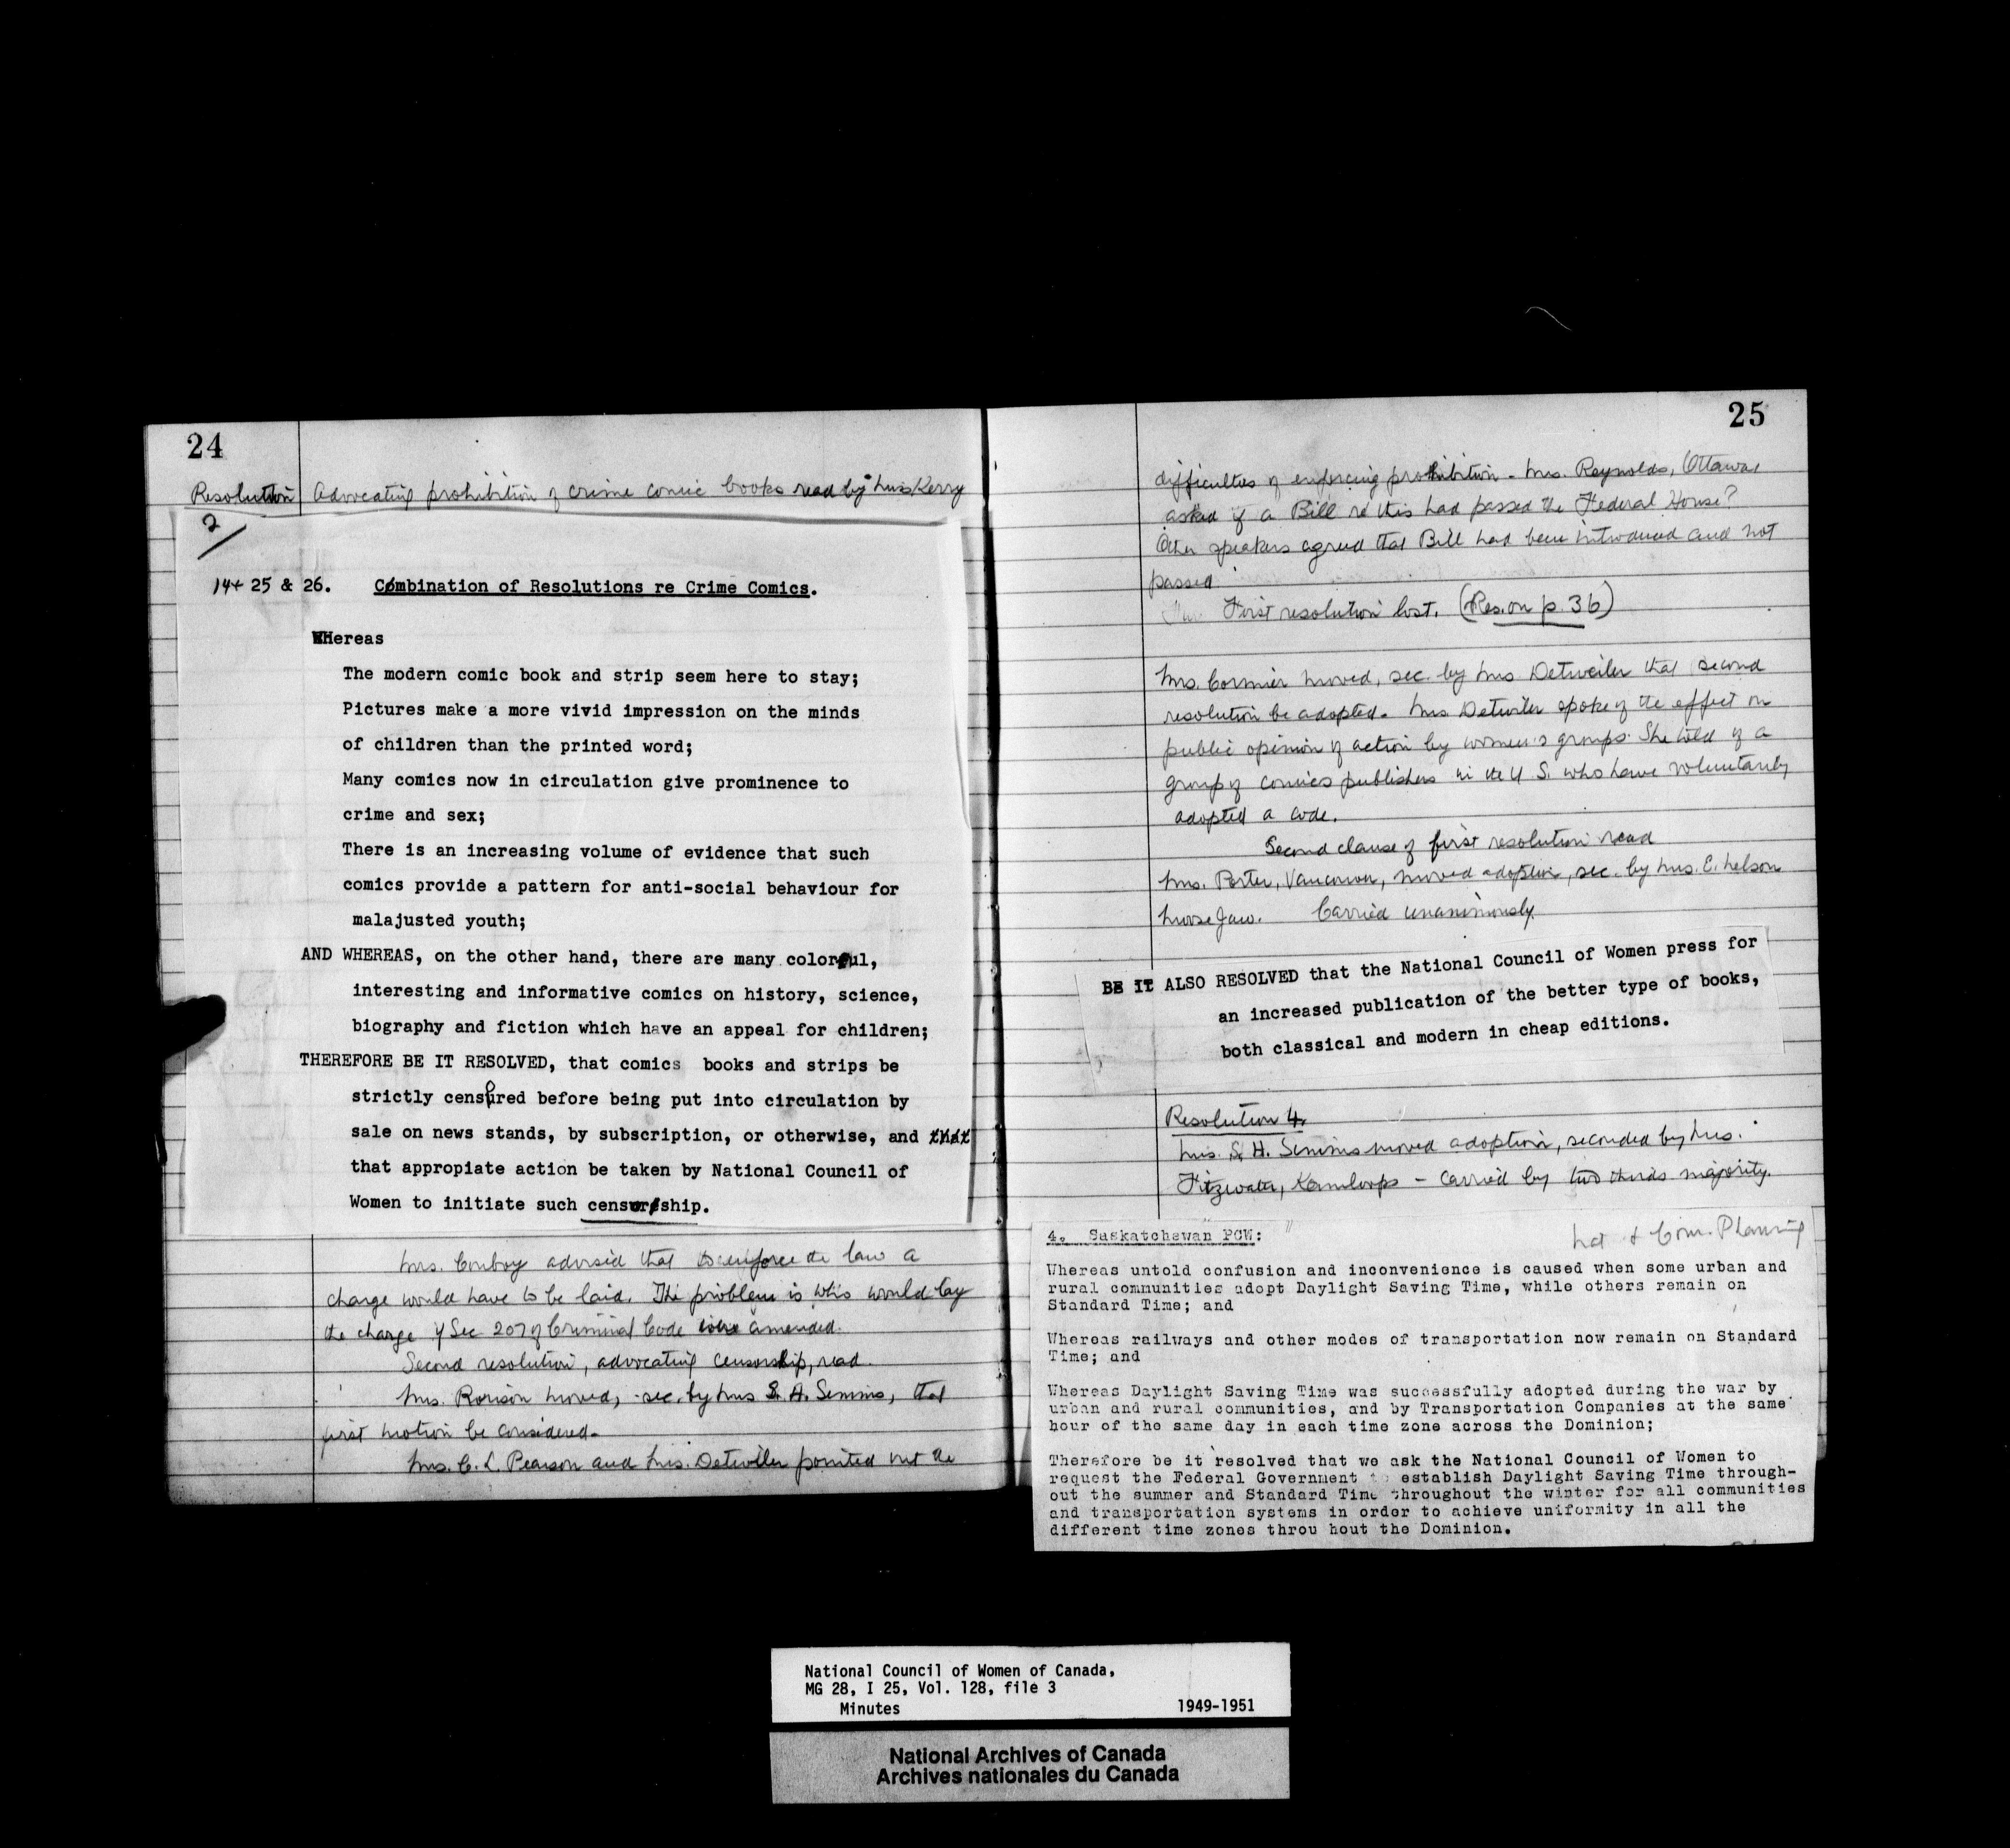 24
Resolution Advocating prohibition of crime comic books read by Mrs Kerry
2/
14+ 25 & 26. Combination of Resolutions re Crime Comics.
WHereas
The modern comic book and strip seem here to stay;
Pictures make a more vivid impression on the minds
of children than the printed word;
Many comics now in circulation give prominence to
crime and sex;
There is an increasing volume of evidence that such
comics provide a pattern for anti-social behaviour for
malajusted youth;
AND WHEREAS, on the other hand, there are many colorful,
interesting and informative comics on history, science,
biography and fiction which have an appeal for children;
THEREFORE BE IT RESOLVED, that comics books and strips be
strictly censored before being put into circulation by
sale on news stands, by subscription, or otherwise, and that
that appropiate action be taken by National Council of
Women to initiate such censorship.
Mrs. Conboy advised that to enforce the law a
charge would have to be laid. The problem is who would lay
the charge if Sec 207 of Criminal Code were amended.
Second resolution, advocating censorship, read.
Mrs. Rorison moved, sec. by Mrs S. H. Simms, that
first motion be considered.
Mrs. C. L. Pearson and Mrs. Detwiller pointed out the
25
difficulties of enforcing prohibition - Mrs. Reynolds, Ottawa,
asked if a Bill re this had passed the Federal House?
Other speakers agreed that Bill had been introduced and not
passed.
First resolution lost. (Res. on p. 36)
Mrs. Cormier moved, sec. by Mrs Detweiler that second
resolution be adopted. Mrs Detwiler spoke of the effect on
public opinion of action by women's groups. She told of a
group of comics publishers in the U S. who have voluntarily
adopted a code.
Second clause of first resolution read
Mrs. Porter, Vancouver, moved adoption, sec. by Mrs. E. Nelson
Moose Jaw. Carried unanimously.
BE IT ALSO RESOLVED that the National Council of Women press for
an increased publication of the better type of books,
both classical and modern in cheap editions.
Resolution 4.
Mrs. S. H. Simms moved adoption, seconded by Mrs.
Fitzwater, Kamloops - carried by two thirds majority.
4. Saskatchewan PCW: Nat & Com. Planning
Whereas untold confusion and inconvenience is caused when some urban and
rural communities adopt Daylight Saving Time, while others remain on
Standard Time; and
Whereas railways and other modes of transportation now remain on Standard
Time; and
Whereas Daylight Saving Time was successfully adopted during the war by
urban and rural communities, and by Transportation Companies at the same
hour of the same day in each time zone across the Dominion;
Therefore be it resolved that we ask the National Council of Women to
request the Federal Government to establish Daylight Saving Time through-
out the summer and Standard Time throughout the winter for all communities
and transportation systems in order to achieve uniformity in all the
different time zones throu hout the Dominion.
National Council of Women of Canada,
MG 28, I 25, Vol. 128, file 3
Minutes 1949-1951
National Archives of Canada
Archives nationales du Canada